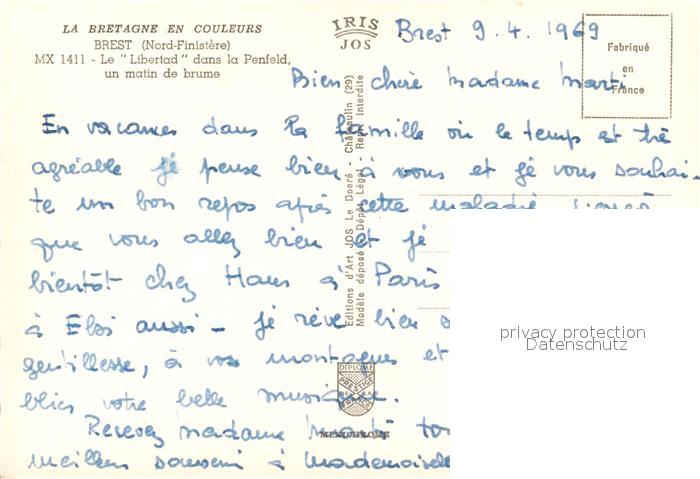 LA BRETAGNE EN COULEURS
BREST (Nord-Finistère)
MX 1411 - Le "Libertad" dans la Penfeld,
un matin de brume
IRIS
JOS
Fabriqué
en
France
Editions d'Art JOS Le Doaré - Châteaulin (29)
Modèle déposé - Dépôt Légal - Repr. interdite
DIPLOME
PRESTIGE
FRANCE
Brest 9.4.1969
Bien chère Madame Marti
En vacances dans la famille où le temps est très
agréable je pense bien à vous et je vous souhai-
te un bon repos après cette maladie.
que vous allez bien et je
bientôt chez Hans à Paris
à Elsi aussi - je rêve bien
gentillesse, à vos montagnes et
blies votre belle musique.
Recevez Madame Marti
meilleur souvenir à Mademoiselle
privacy protection
Datenschutz